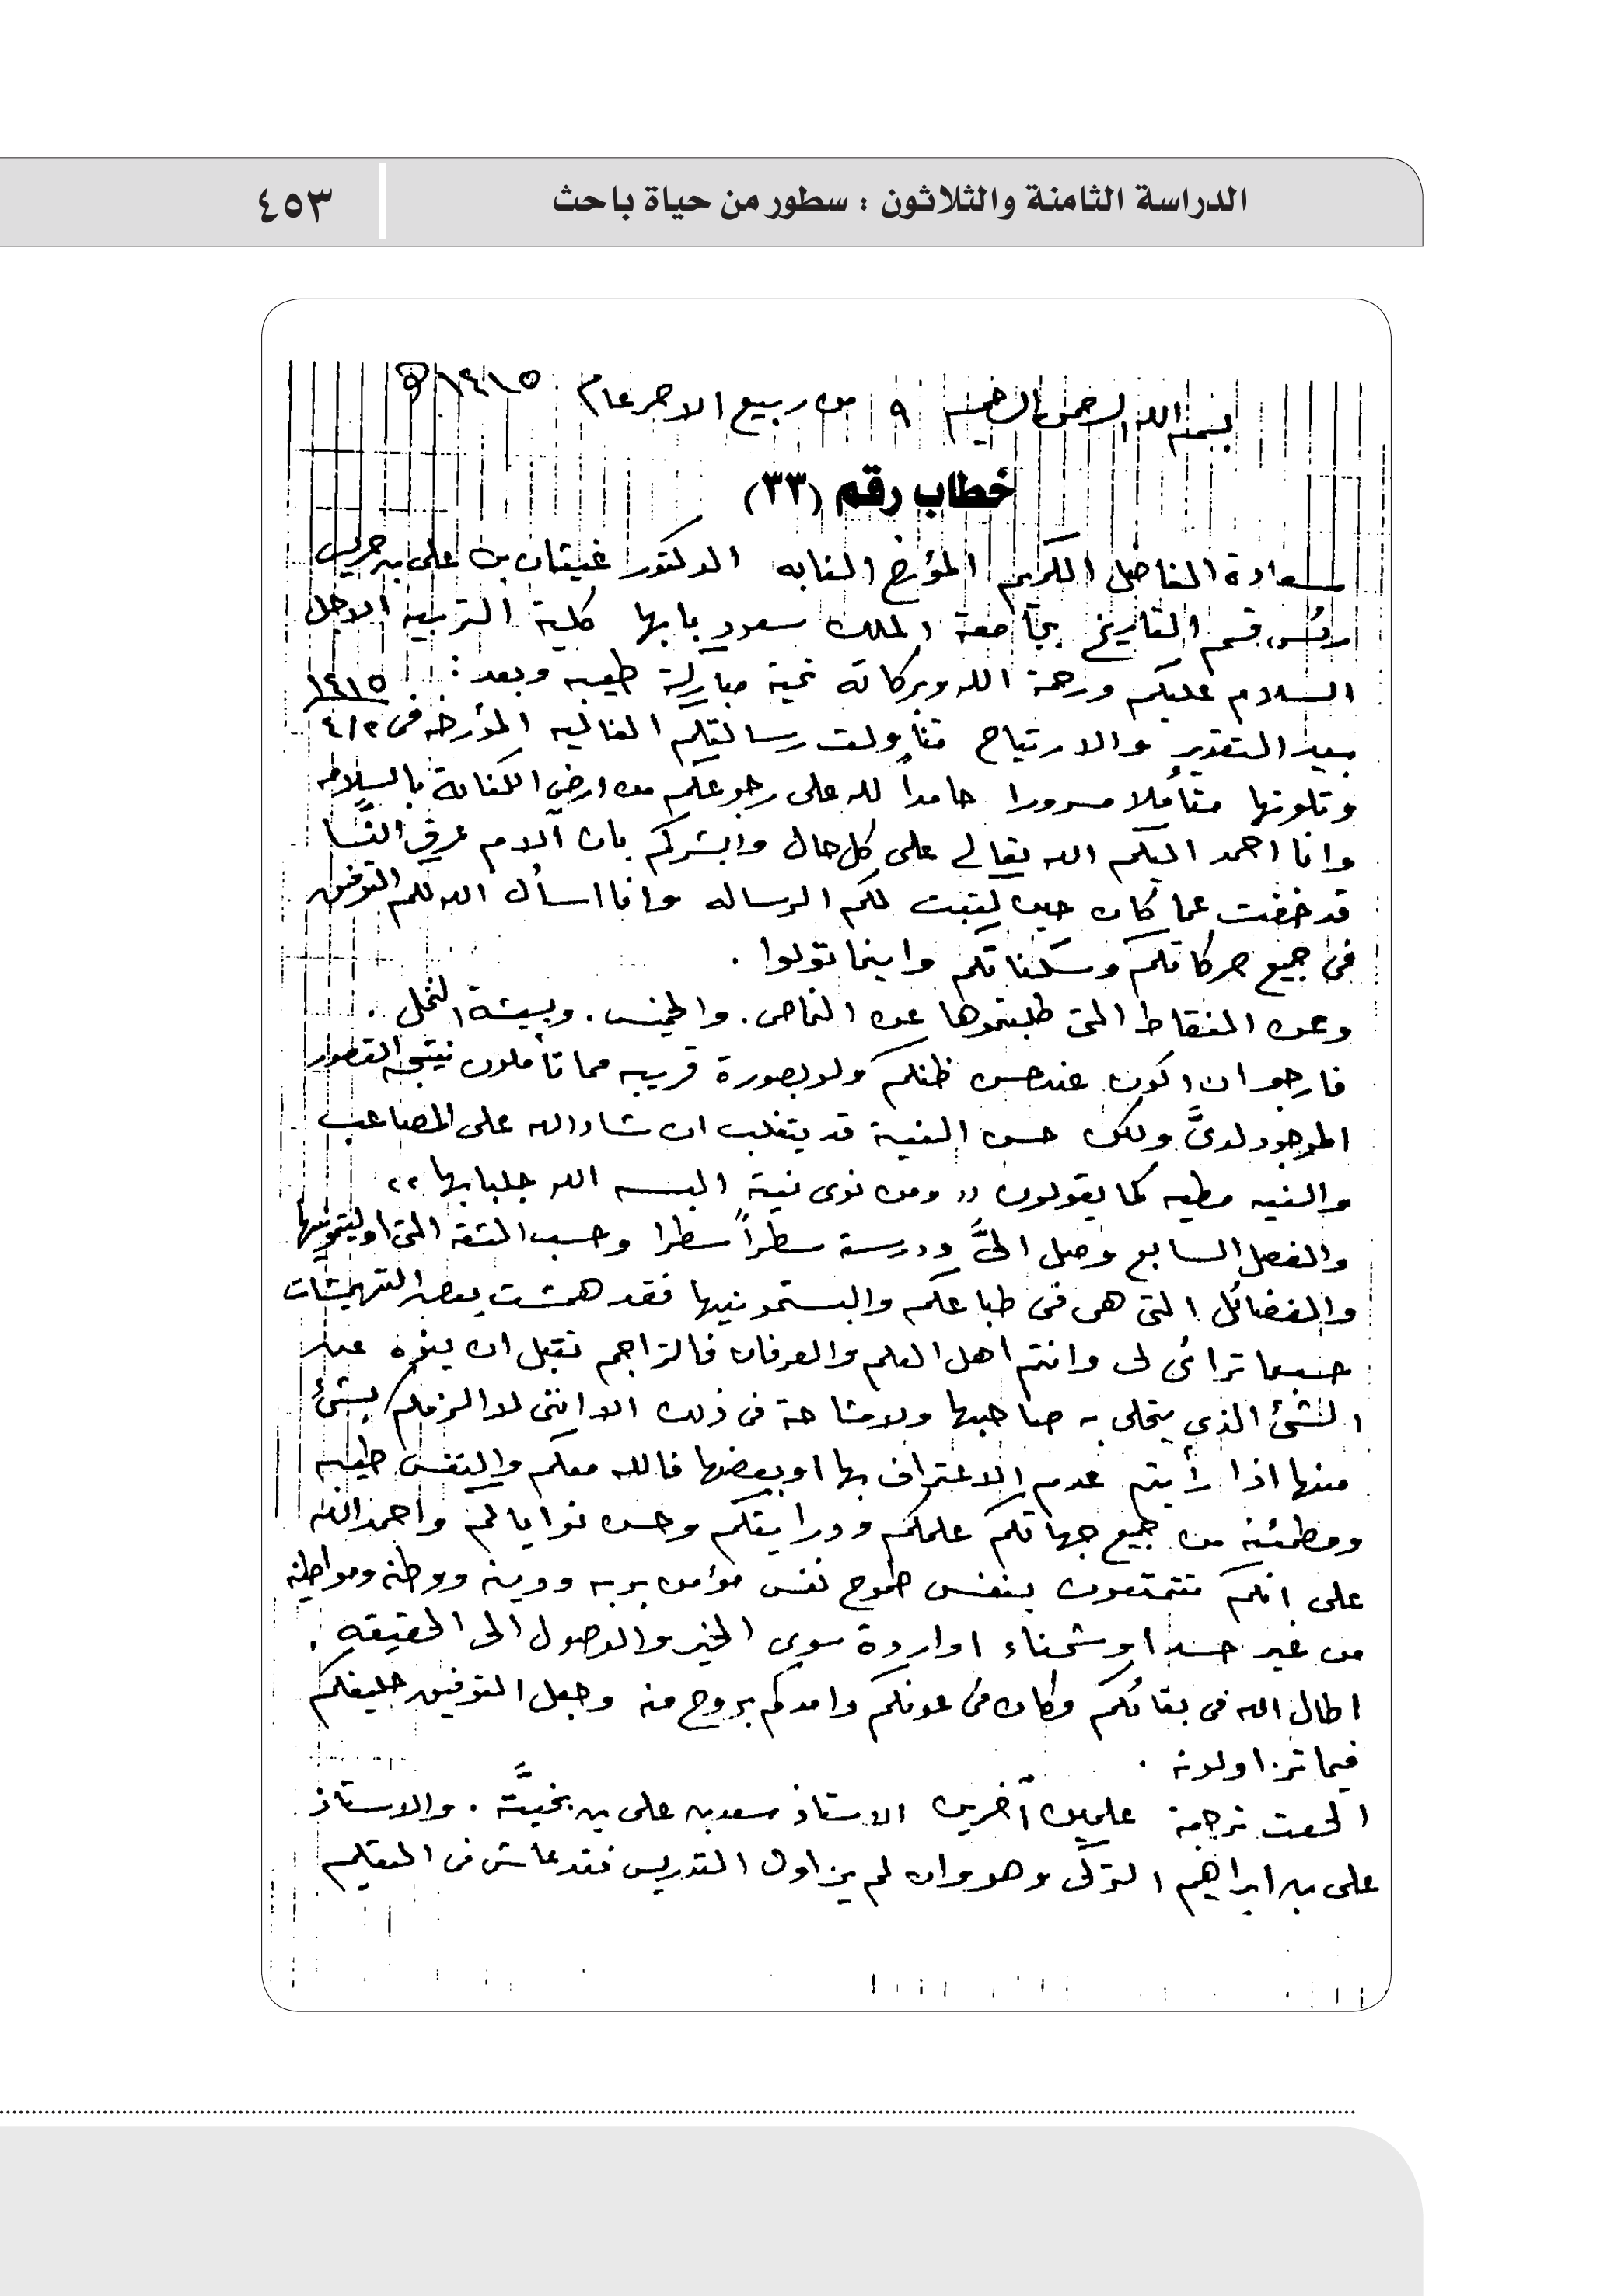 الدراسة الثامنة والثلاثون : سطور من حياة باحث
٤٥٣
بسم الله الرحمن الرحيم ٩ من ربيع الاخر عام ١٤١٥ هـ
خطاب رقم (٣٣)
سعادة الفاضل الكريم المؤرخ النابه الدكتور غيثان بن على بن جريس
رئيس قسم التاريخ بجامعة الملك سعود بابها كلية التربيه الاجل
السلام عليكم ورحمة الله وبركاته تحية مباركة طيبه وبعد :
بيد التقدير والارتياح تناولت رسالتكم الغاليه المؤرخه فى ٤/٢ ١٤١٥
وتلوتها متأملا مسرورا حامداً لله على رجوعكم من ارض الكنانة بالسلامه
وانا احمد اليكم الله تعالى على كل حال وابشركم بان آلام عرق النسا
قد خفت عما كان حين كتبت لكم الرساله وانا اسأل الله لكم التوفيق
فى جميع حركاتكم وسكناتكم واينما تولوا .
وعن النقاط التى طلبتموها عن النماص . والخميس . وبيشة النخل .
فارجو ان اكون عند حسن ظنكم ولو بصورة قريبه مما تأملون نتيجة القصور
الموجود لدىَّ ولكن حسن النية قد يتغلب ان شاء الله على المصاعب
والنيه مطيه كما يقولون ,, ومن نوى نية البسه الله جلبابها ,,
والفصل السابع وصل الىَّ ودرسته سطراً سطرا وحسب الثقه التى اوليتمونيها
والفضائل التى هى فى طباعكم والبستمونيها فقد همشت بعض التهميشات
حسبما ترائى لى وانتم اهل العلم والعرفان فالتراجم تقبل ان ينوه عن
الشئ الذي يتحلى به صاحبها ولا مشاحة فى ذلك الا اننى لا الزمكم بشئ
منها اذا رأيتم عدم الاعتراف بها او بعضها فالله معكم والنفس طيبه
ومطمئنه من جميع جهاتكم علمكم ودرايتكم وحسن نواياكم واحمد الله
على انكم تتمتعون بنفس طموح نفس مؤمن بربه ودينه ووطنه ومواطنه
من غير حسد او شحناء او اردة سوى الخير والوصول الى الحقيقه .
اطال الله فى بقائكم وكان فى عونكم وامدكم بروح منه وجعل التوفيق حليفكم
فيما تزاولونه .
الحقت ترجمة علمين آخرين الاستاذ سعد بن على بن بخيتَّه . والاستاذ
على بن ابراهيم التركى وهو وان لم يزاول التدريس فقد عاش فى التعليم